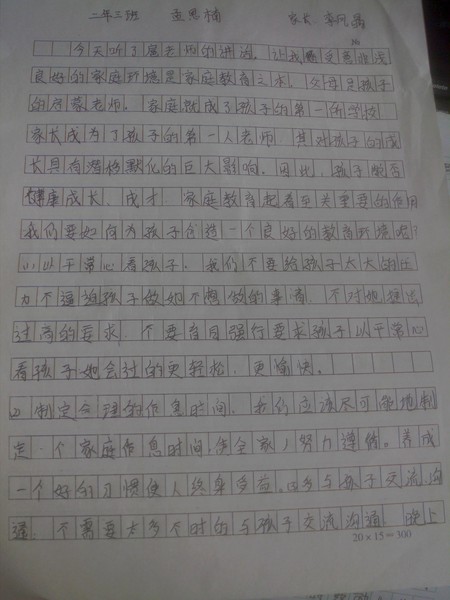 二年三班 孟思楠 家长:李凤
今天听了屈老师的讲演,让我感受意非浅
良好的家庭环境是家庭教育之本,父母是孩子
的启蒙老师,家庭就成了孩子的第一所学校,
家长成为了孩子的第一人老师,其对孩子的成
长具有潜移默化的巨大影响。因此,孩子能否
健康成长、成才,家庭教育起着至关重要的作用
我们要如何为孩子创造一个良好的教育环境呢?
(1)以平常心看孩子,我们不要给孩子太大的压
力不逼迫孩子做她不想做的事情,不对她提出
过高的要求,不要盲目强行要求孩子以平常心
看孩子她会过的更轻松,更愉快。
(2)制定合理的作息时间,我们应该尽可能地制
定一个家庭作息时间,使全家人努力遵循。养成
一个好的习惯使人终身受益。(3)多与孩子交流沟
通,不需要太多不时的与孩子交流沟通,晚上
20×15=300